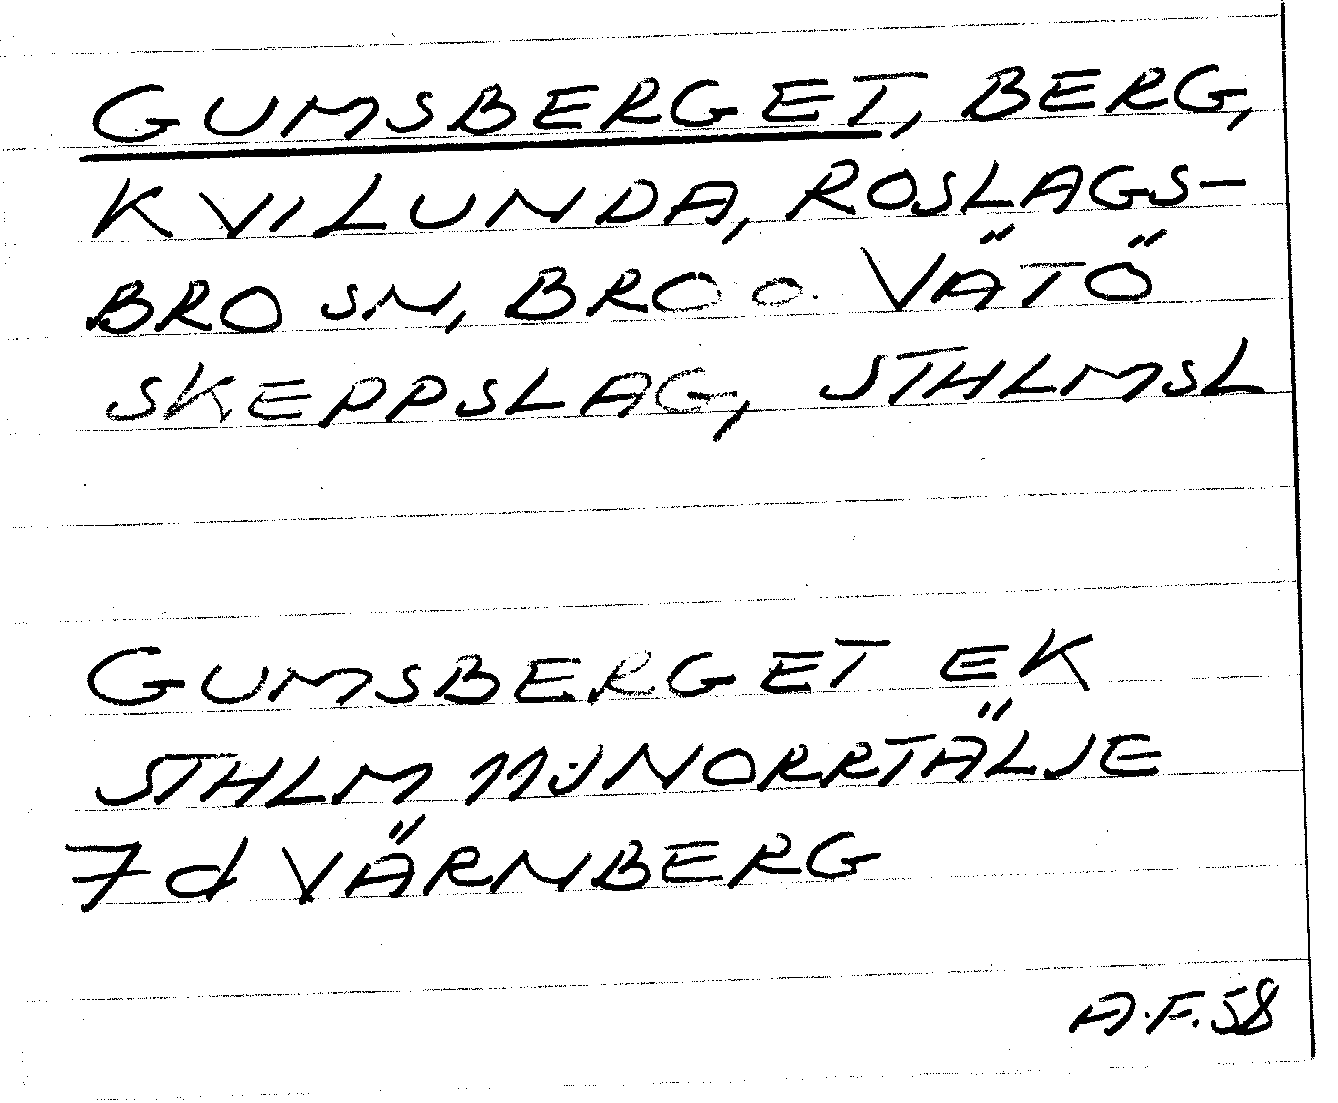 GUMSBERGET, BERG,
KVILUNDA, ROSLAGS-
BRO SN, BRO O. VÄTÖ
SKEPPSLAG, STHLMSL
GUMSBERGET EK
STHLM 11J NORRTÄLJE
7d VÄRNBERG
A.F. 58